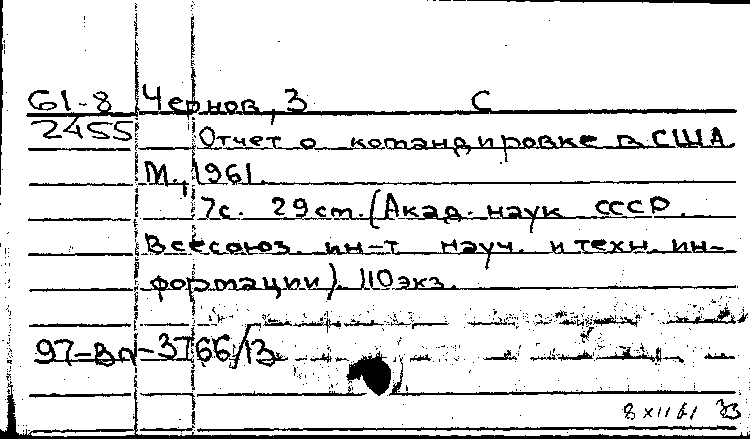 61-8 Чернов, З С
2455 Отчет о командировке в США
М., 1961.
7с. 29см. (Акад. наук СССР.
Всесоюз. ин-т науч. и техн. ин-
формации). 110экз.
97-Вп-3766/13
8 XII 61